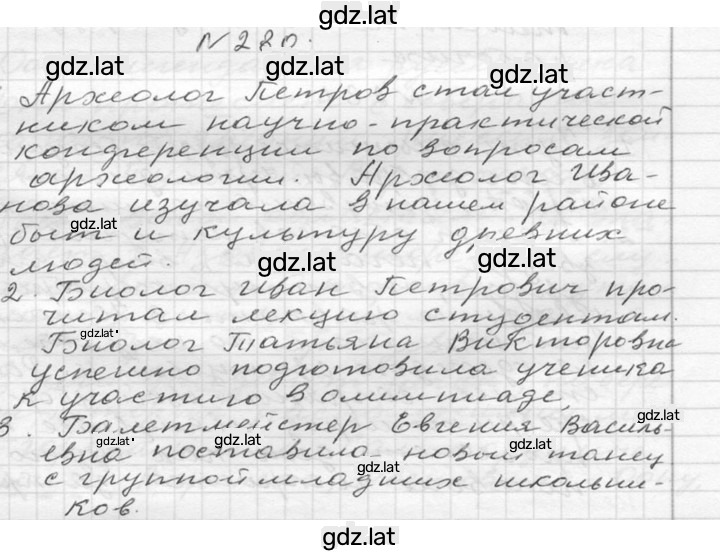 gdz.lat
№ 220.
gdz.lat gdz.lat gdz.lat
Археолог Петров стал участ-
ником научно-практической
конференции по вопросам
археологии. Археолог Ива-
нова изучала в нашем районе
gdz.lat
быт и культуру древних
людей.
gdz.lat gdz.lat
2. Биолог Иван Петрович про-
читал лекцию студентам.
gdz.lat
Биолог Татьяна Викторовна
успешно подготовила ученика
к участию в олимпиаде,
gdz.lat
3. Балетмейстер Евгения Василь-
gdz.lat gdz.lat
евна поставила новый танец
gdz.lat
с группой младших школьни-
ков.
gdz.lat